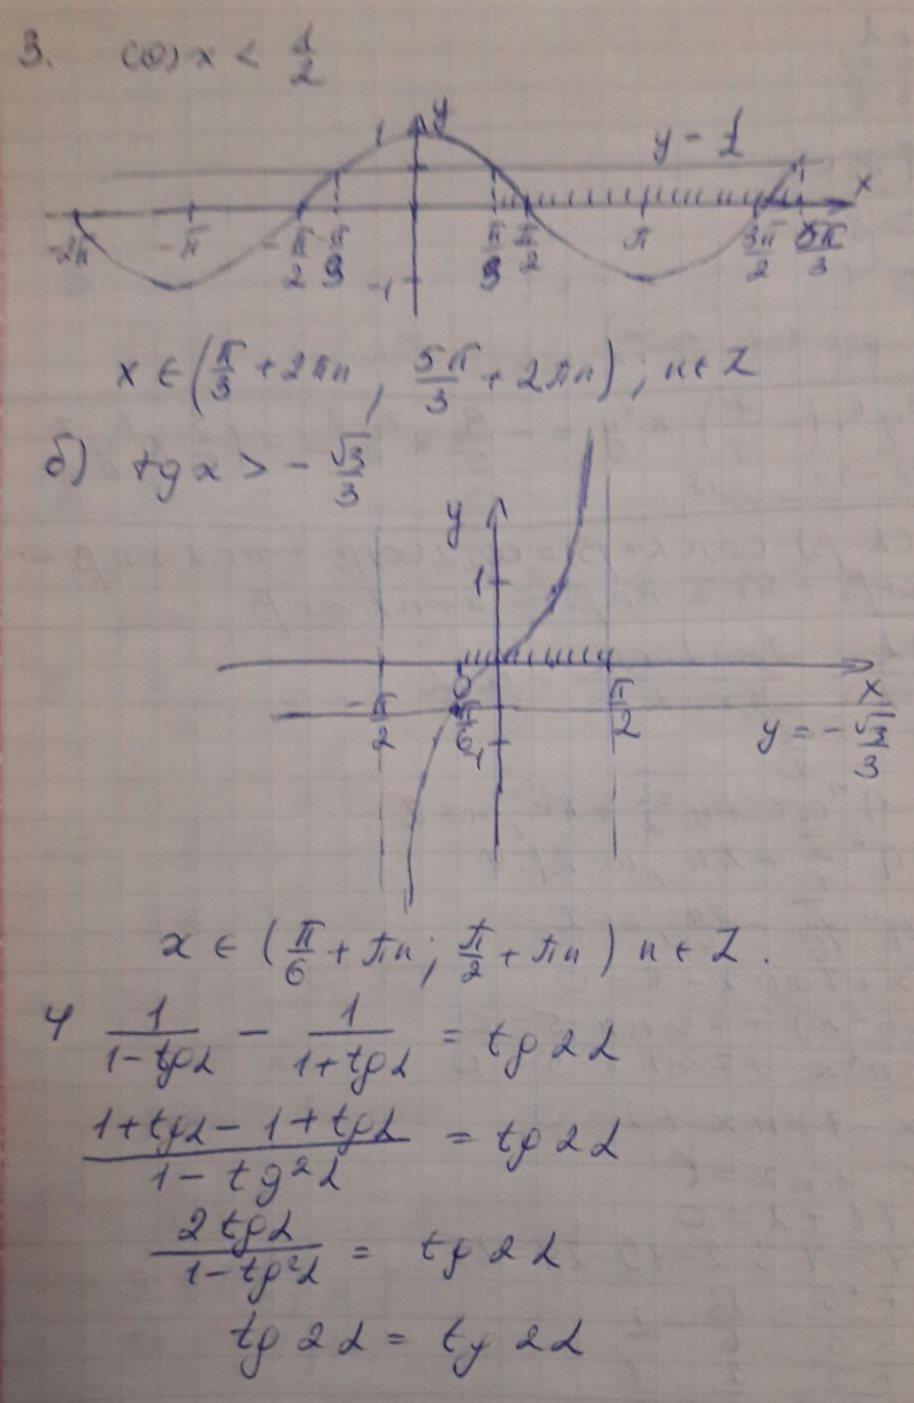 3. cos x < 1/2
y
1
y = 1
x
-2π -π -π/2 -π/3 π/3 π/2 π 3π/2 5π/3
-1
x ∈ (π/3 + 2πn, 5π/3 + 2πn); n ∈ Z
б) tg x > -√3/3
y
1
0
x
-π/2 π/6 π/2
-1
y = -√3/3
x ∈ (π/6 + πn; π/2 + πn) n ∈ Z.
4 1/(1-tgα) - 1/(1+tgα) = tg 2α
(1+tgα - 1+tgα)/(1-tg²α) = tg 2α
2tgα/(1-tg²α) = tg 2α
tg 2α = tg 2α